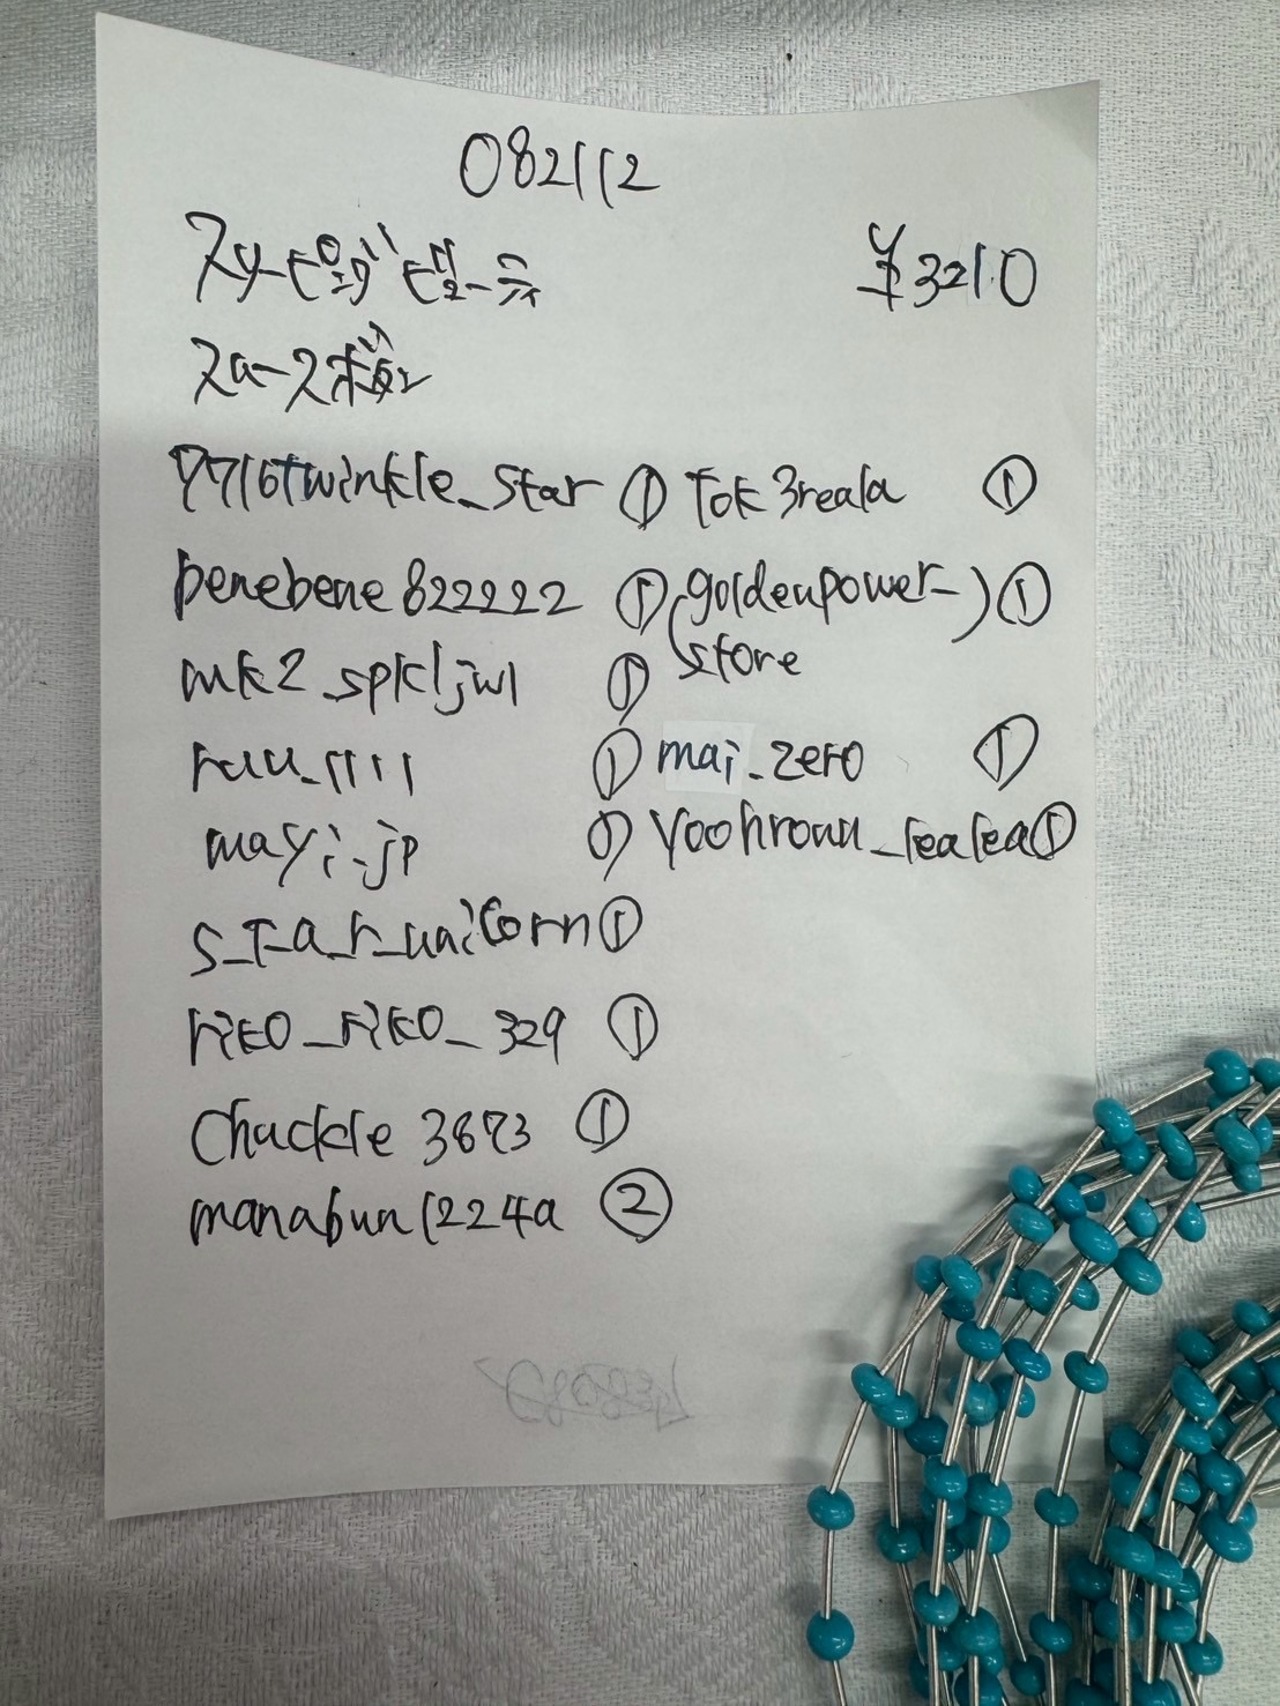 082112
スリーピングビューティ
¥3210
7716twinkle_star ① Tok3reala ①
benebene822222 ① (goldenpower-) ①
store
mk2_spkljwl ①
ruu_1111 ① mai_zero ①
mayi_jp ① Yoohroun_lealea ①
s_t_a_r_unicorn ①
riko_riko_329 ①
Chuckle 3673 ①
manabun1224a ②